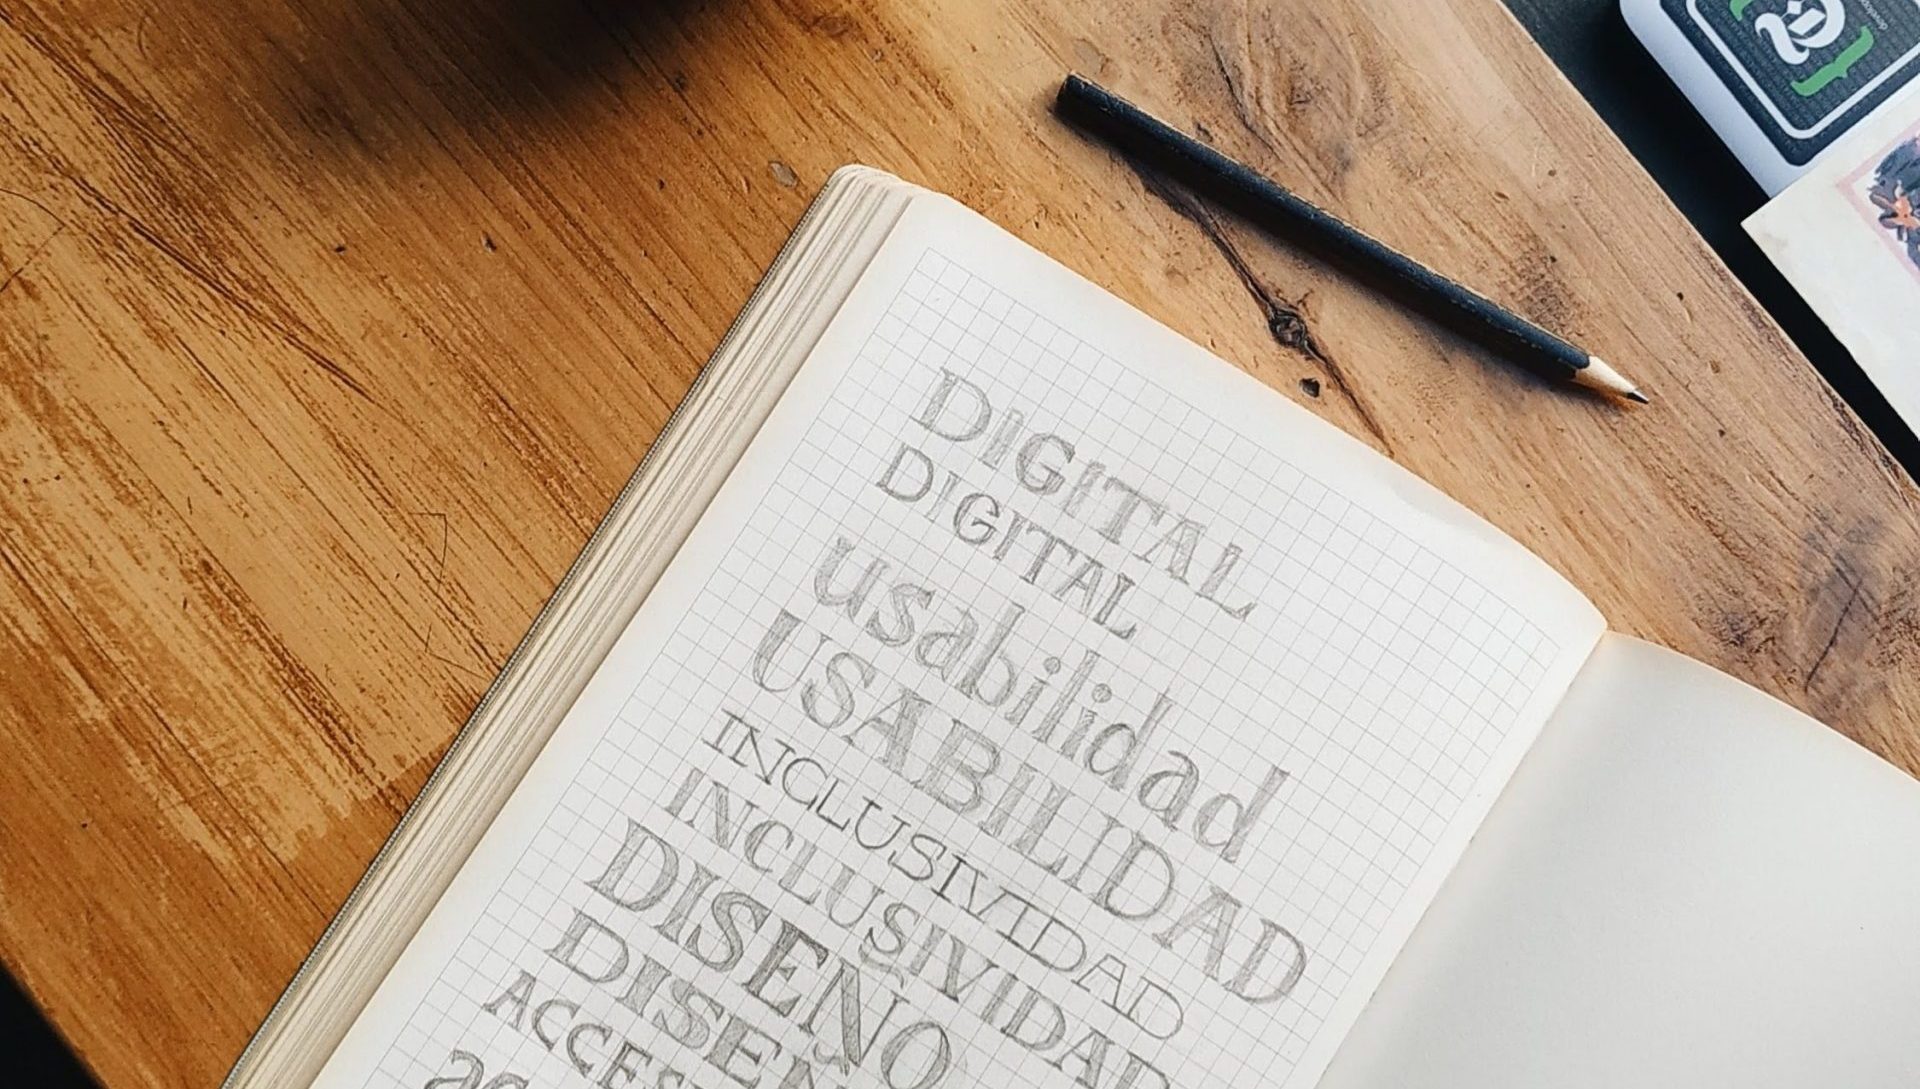 DIGITAL
DIGITAL
usabilidad
USABILIDAD
INCLUSIVIDAD
INCLUSIVIDAD
DISEÑO
DISEÑ
ACCES